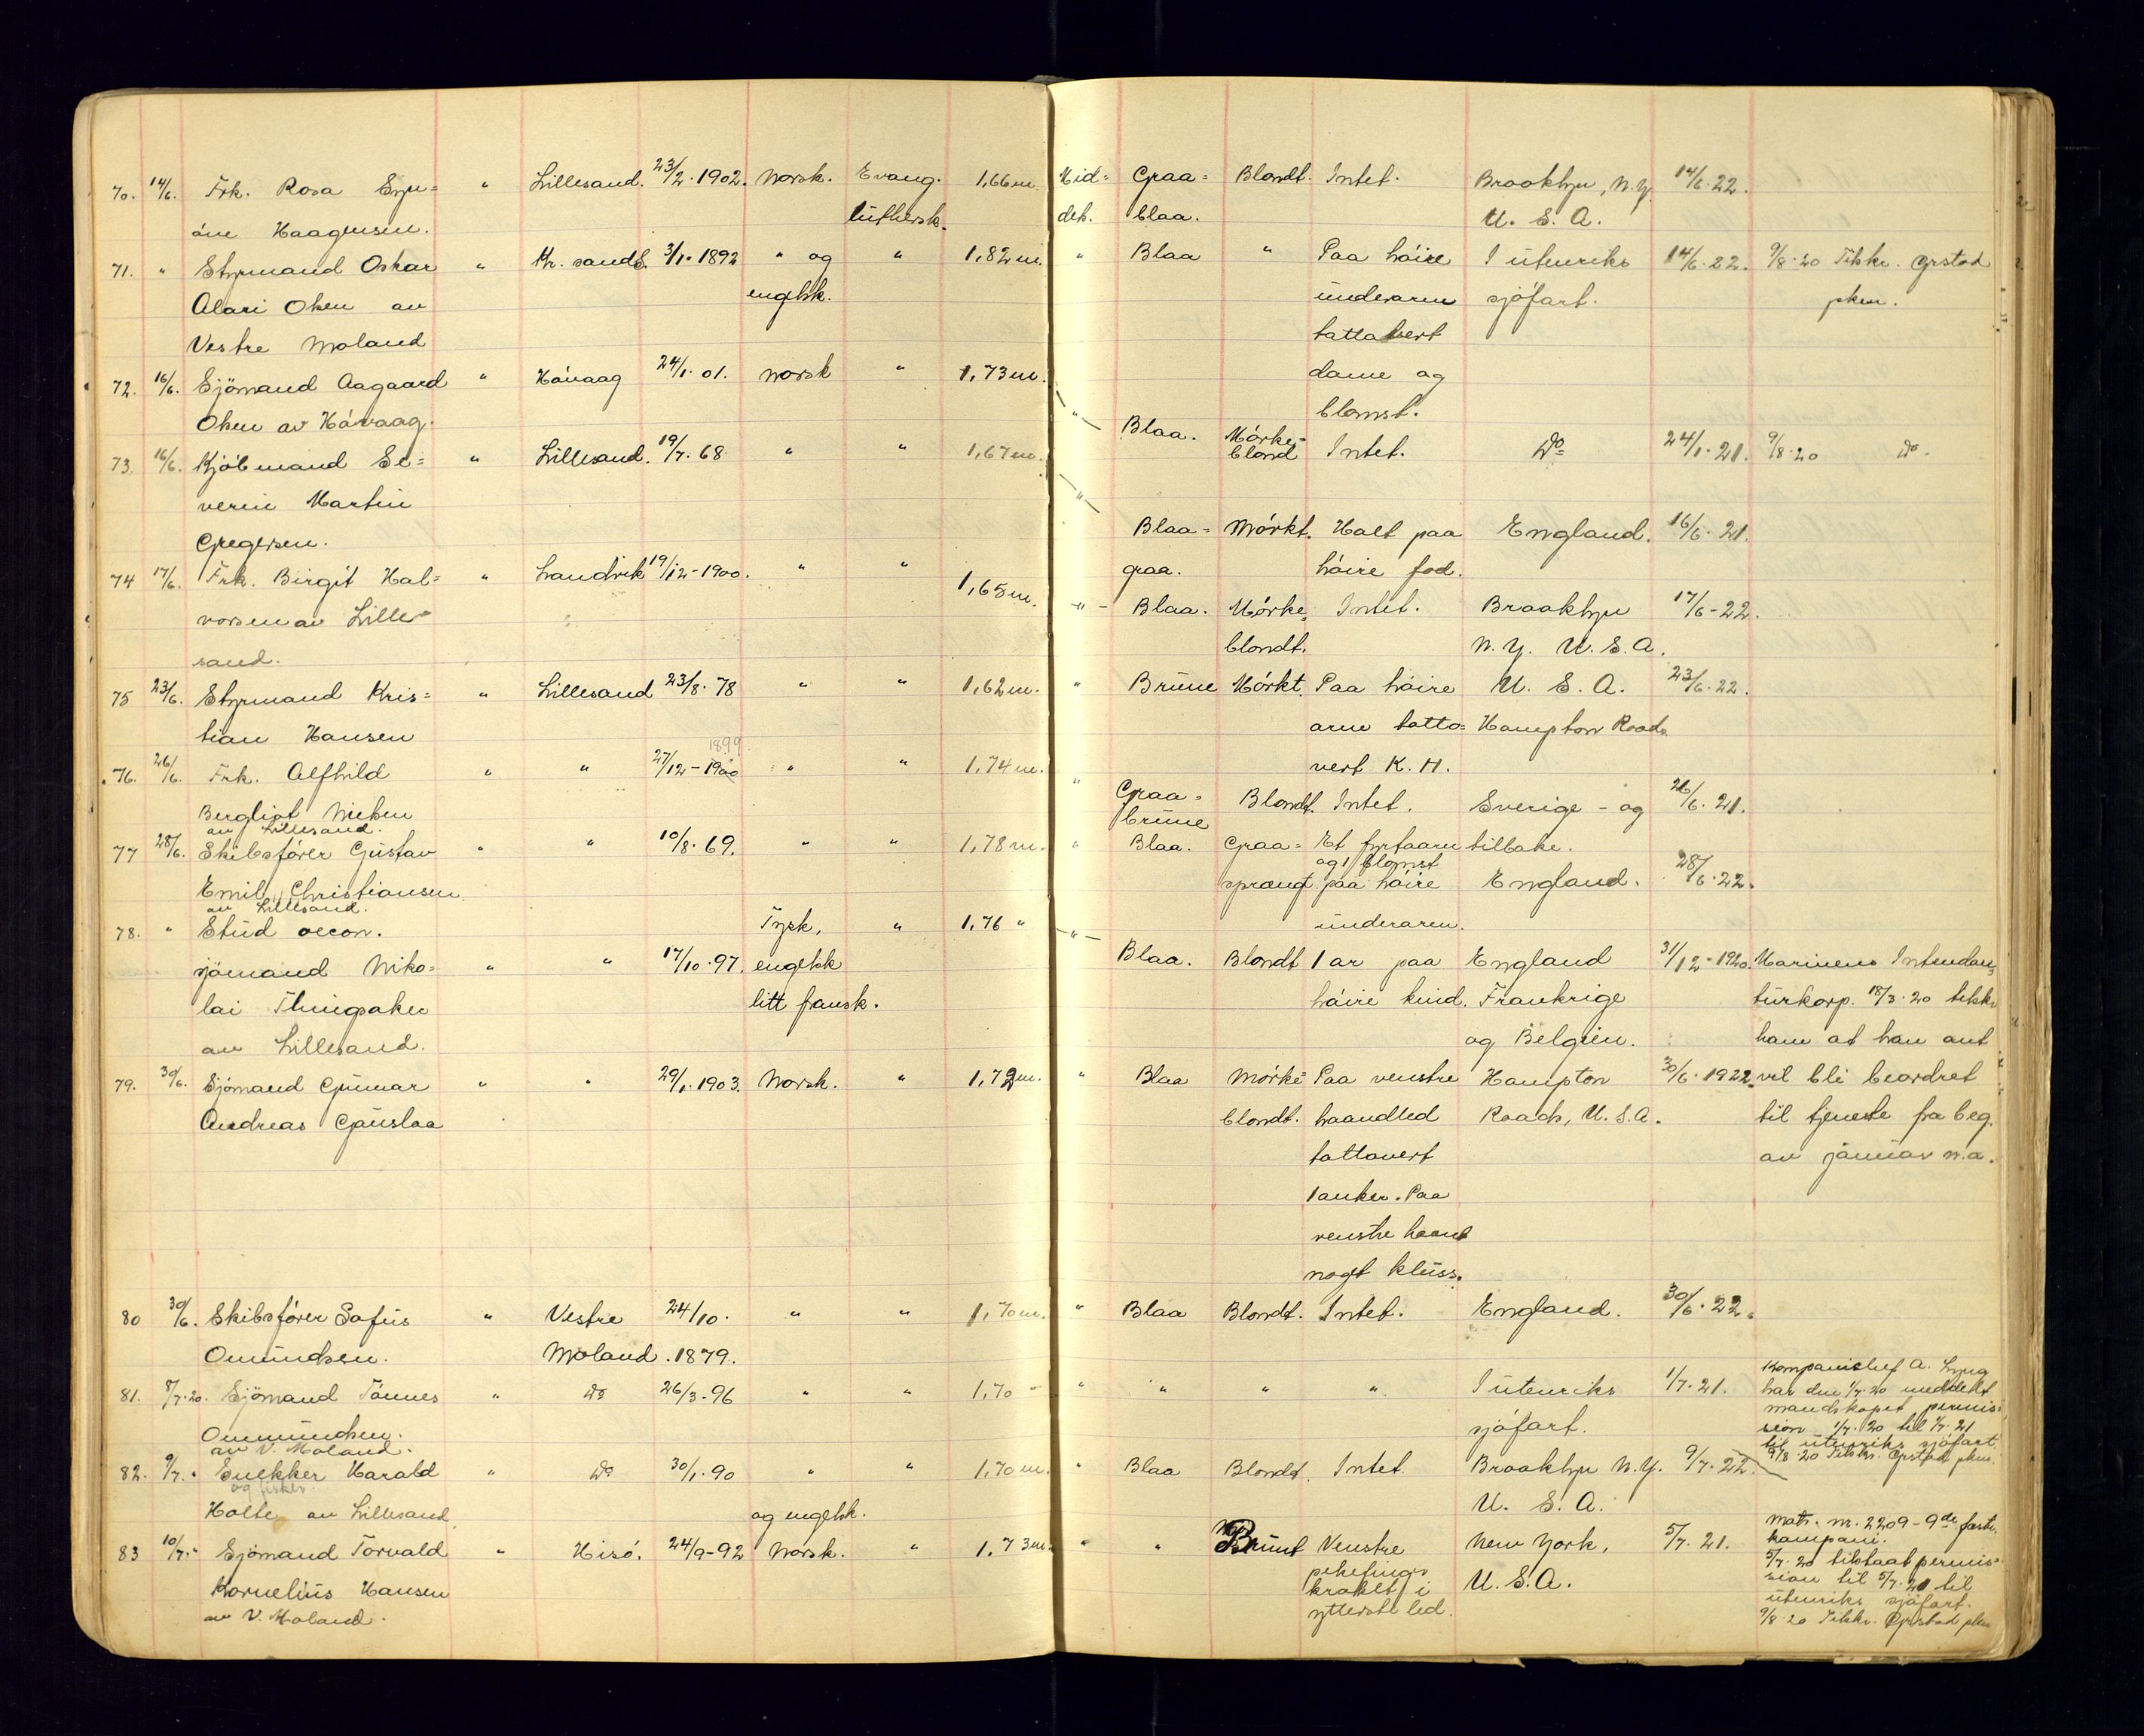 70. 14/6. Frk. Rosa Syn= " Lillesand. 23/2.1902. Norsk. Evang. 1,66 m. Mid= Graa= Blondt. Intet. Brooklyn, N.Y. 14/6.22.
Haagensen. luthersk. del. blaa. U. S. A.
71. " Styrmand Oskar " Kr.sand S. 3/1.1892 " og " 1,82 m. " Blaa " Paa höire I utenriks 14/6.22. 9/8.20 Tilskr. Grstad
Alari Olsen av engelsk. underarm sjöfart. pkm.
Vestre Moland tattovert
72. 16/6. Sjömand Aagaard " Hövaag 24/1.01. norsk " 1,73 m. dame og
Olsen av Hövaag. blomst.
" Blaa. Mörke= blond Intet. Do 24/1.21. 9/8.20 Do.
73. 16/6. Kjöbmand Se= " Lillesand. 19/7.68 " " 1,67 m.
verin Martin
Gregersen. " Blaa= Mörkt. Halt paa England. 16/6.21.
graa. höire fod.
74 17/6. Frk. Birgit Hal= " Landvik 19/12-1900. " " 1,65 m. " Blaa. Mörke= Intet. Brooklyn 17/6-22.
vorsen av Lille= blondt. N.Y. U.S.A.
sand.
75 23/6. Styrmand Kris= " Lillesand 23/8.78 " " 1,62 m. " Brune Mörkt. Paa höire U. S. A. 23/6.22.
tian Hansen arm tatto= Hampton Roads
1899. vert K. H.
76. 26/6. Frk. Alfhild " " 27/12-1900 " " 1,74 m. " Graa= Blondt. Intet. Sverige - og 26/6.21.
Bergliot Nielsen brune tilbake.
av Lillesand.
77 28/6. Skibsförer Gustav " " 10/8.69. " " 1,78 m. " Blaa. Graa= Et fyrtaarn
og 1 blomst
Emil Christiansen sprængt. paa höire England. 28/6.22.
av Lillesand. underarm.
78. " Stud oecon. Tysk, " 1,76 " " Blaa. Blondt 1 ar paa England 31/12-1920. Marinens Intendan=
sjömand Niko= " " 17/10.97. engelsk höire kind. Frankrige turkorp. 18/3.20 tilskr.
lai Tingsaker litt fransk. og Belgien. ham at han ant
av Lillesand.
79. 30/6. Sjömand Gunnar " " 29/1.1903. Norsk. " 1,72 m. " Blaa Mörke= Paa venstre Hampton 30/6.1922. vil bli beordret
Andreas Gauslaa blondt. haandled Roads, U.S.A. til tjeneste fra beg.
tattovert av januar n.a.
1 anker. Paa
venstre haand
noget kluss.
80 30/6. Skibsförer Sofus " Vestre 24/10. " " 1,70 m. " Blaa Blondt. Intet. England. 30/6.22.
Omundsen. Moland. 1879.
81. 8/7.20. Sjömand Tönnes " Do 26/3-96 " " 1,70 " " " " " I utenriks 1/7.21. Kompanichef A. Lyng
Ommundsen. sjöfart. har den 1/7.20 meddelt
av V. Moland. mandskapet permis=
sion 1/7.20 til 1/7.21
til utenriks sjöfart.
9/8 20 Tilskr. Grstad pkm.
82. 9/7. " Snekker Harald " Do 30/1.90 " " 1,70 m. " Blaa Blondt. Intet. Brooklyn N.Y. 9/7.22.
og fisker
Holte av Lillesand. og engelsk. U. S. A.
83 10/7. " Sjömand Torvald " Hisö. 24/9-92 Norsk. " 1,73 m. " " Brunt Venstre New York, 5/7.21. Matr. nr. 2209 - 9de fastn.
Kornelius Hansen pekefinger U.S.A. kompani.
av V. Moland. kroklet i 5/7.20 tilstaat permis=
ytterste led. sion til 5/7.21 til
utenriks sjöfart.
9/8.20 Tilskr. Grstad pkm